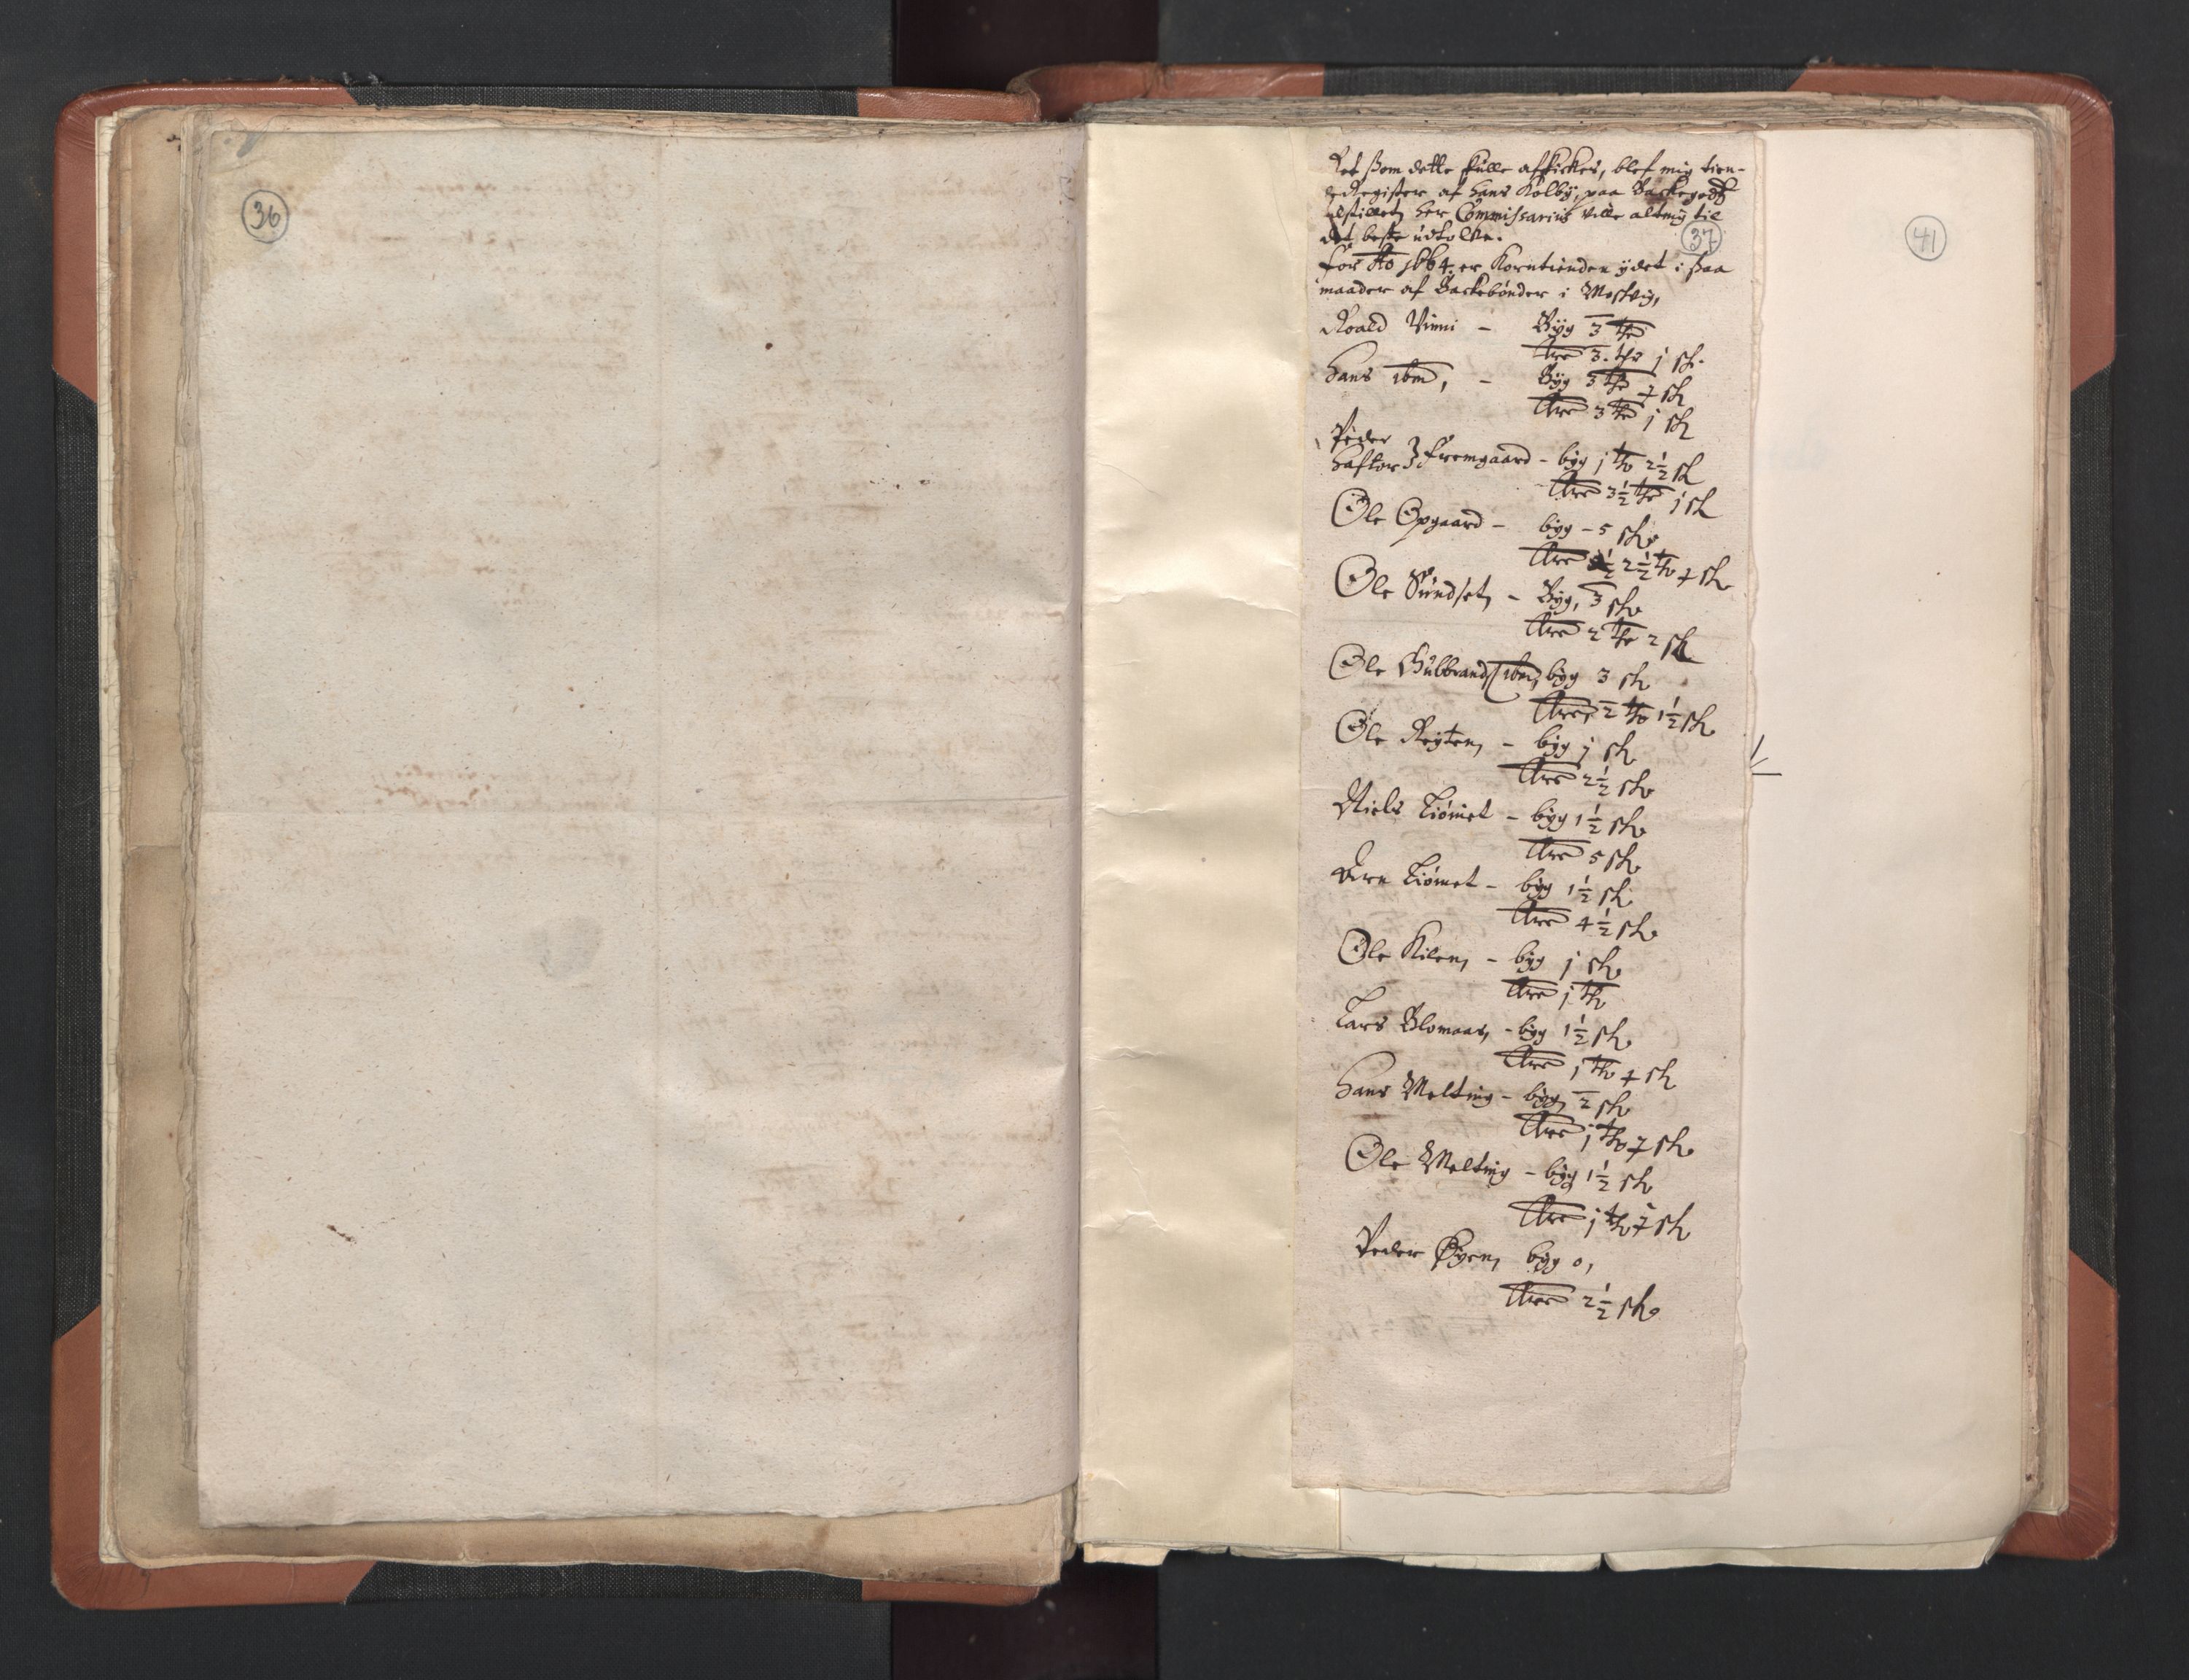 36
Ret som dette skulle afskickes, blef mig tien-
deRegister af Hans Kolby, paa Backegodtz
tilstillet, her Commissarius wille altmig til
det beste udtolke.
37
41
for Ao 1664. er Korntienden ydet i saa
maader af Backebönder i Moswig,
Roald Vinni - Byg 3 tr
Aure 3. tr j sk.
Hans ibm, - Byg 3 tr 7 sk
Aure 3 tr j sk
Peder
Haftor } Fremgaard - byg j tr 2½ sk
Aure 3½ tr j sk
Ole Opgaard - byg - 5 sk
Aure 2½ tr 7 sk
Ole Sundset, - Byg, 3 sk
Aure 2 tr 2 sk
Ole Gulbrands ibm, byg 3 sk
Aure 2 tr 1½ sk
Ole Røyten, - byg j sk
Aure 2½ sk
Niels Liömet - byg 1½ sk
Aure 5 sk
Arn Liömet - byg 1½ sk
Aure 4½ sk
Ole Kilen, - byg j sk
Aure j tr
Lars Blomaas, - byg 1½ sk
Aure j tr 4 sk
Hans Melting - byg, 2 sk
Aure j tr 7 sk
Ole Melting - byg 1½ sk
Aure j tr 7 sk
Peder Öyen, byg 0,
Aure 2½ sk